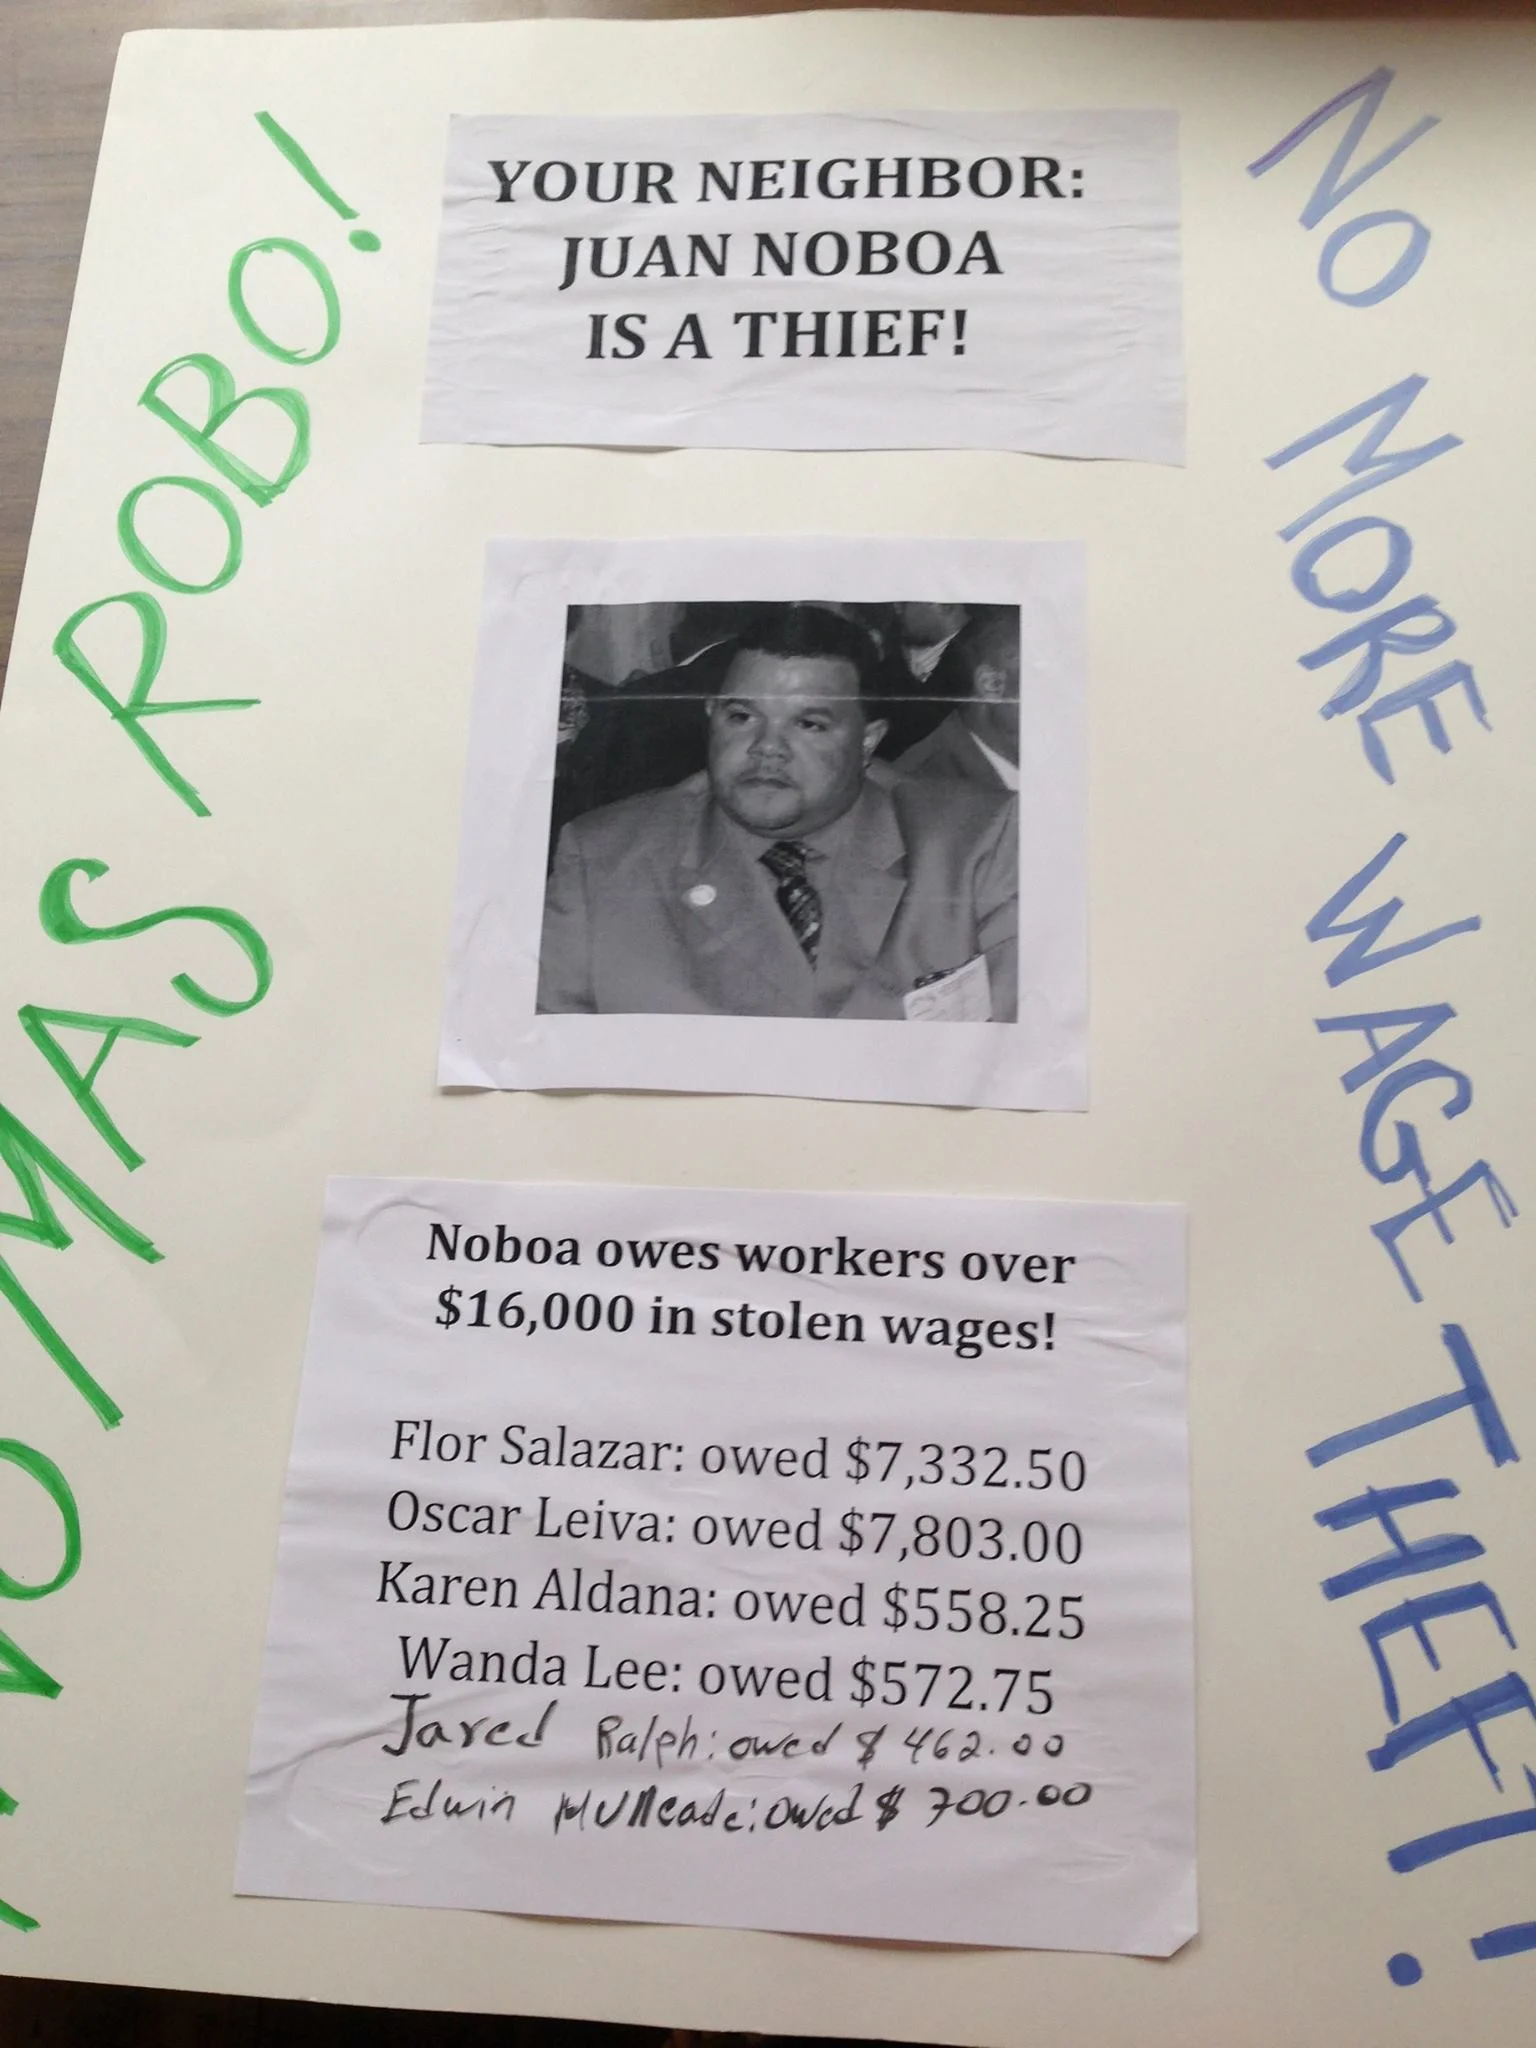 YOUR NEIGHBOR:
JUAN NOBOA
IS A THIEF!
Noboa owes workers over
$16,000 in stolen wages!
Flor Salazar: owed $7,332.50
Oscar Leiva: owed $7,803.00
Karen Aldana: owed $558.25
Wanda Lee: owed $572.75
Jared Ralph: owed $462.00
Edwin MUNcade: owed $700.00
NO MAS ROBO!
NO MORE WAGE THEFT!